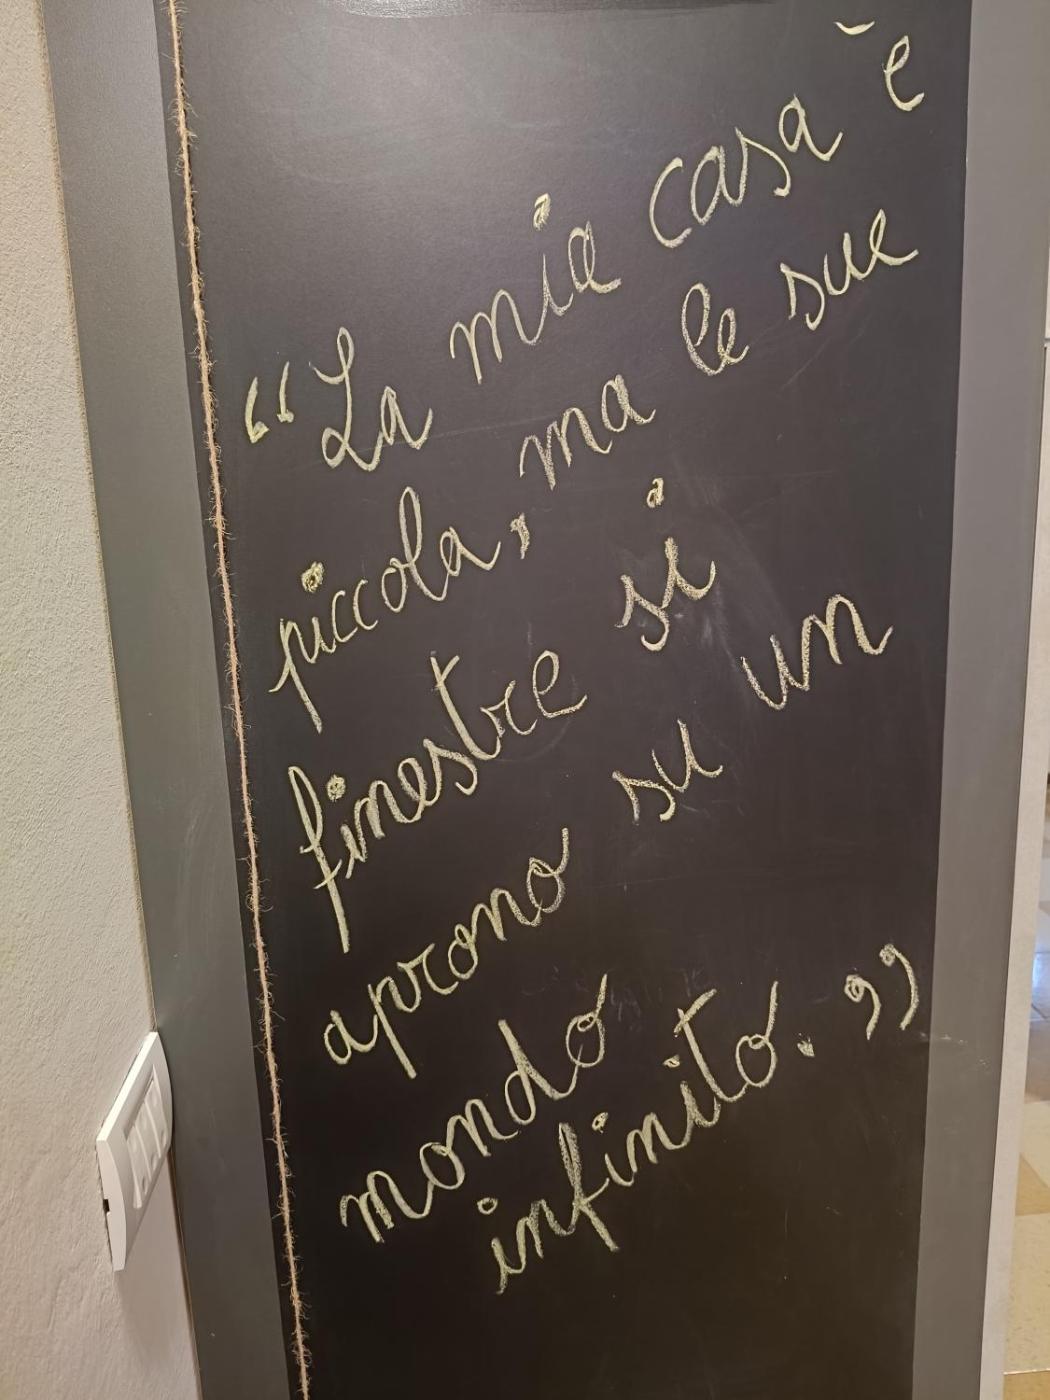 “La mia casa è
piccola, ma le sue
finestre si
aprono su un
mondo
infinito.”